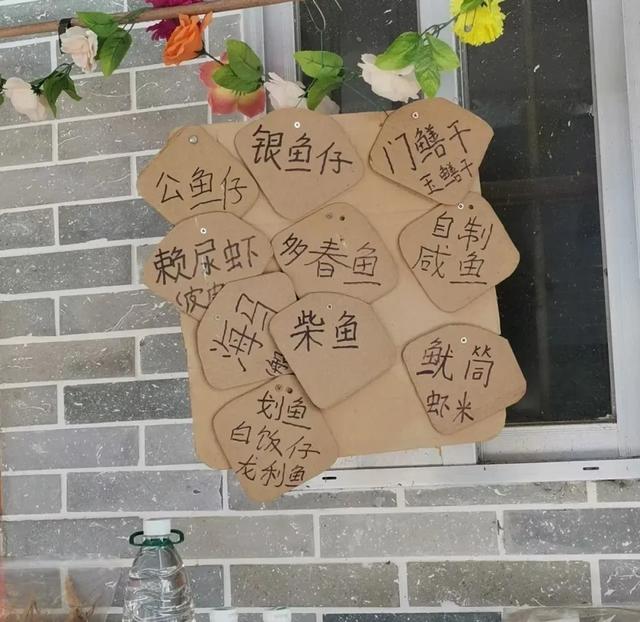 公鱼仔
银鱼仔
门鳝干
玉鳝干
赖尿虾
(皮皮
多春鱼
自制
咸鱼
海马
柴鱼
鱿筒
虾米
划鱼
白饭仔
龙利鱼